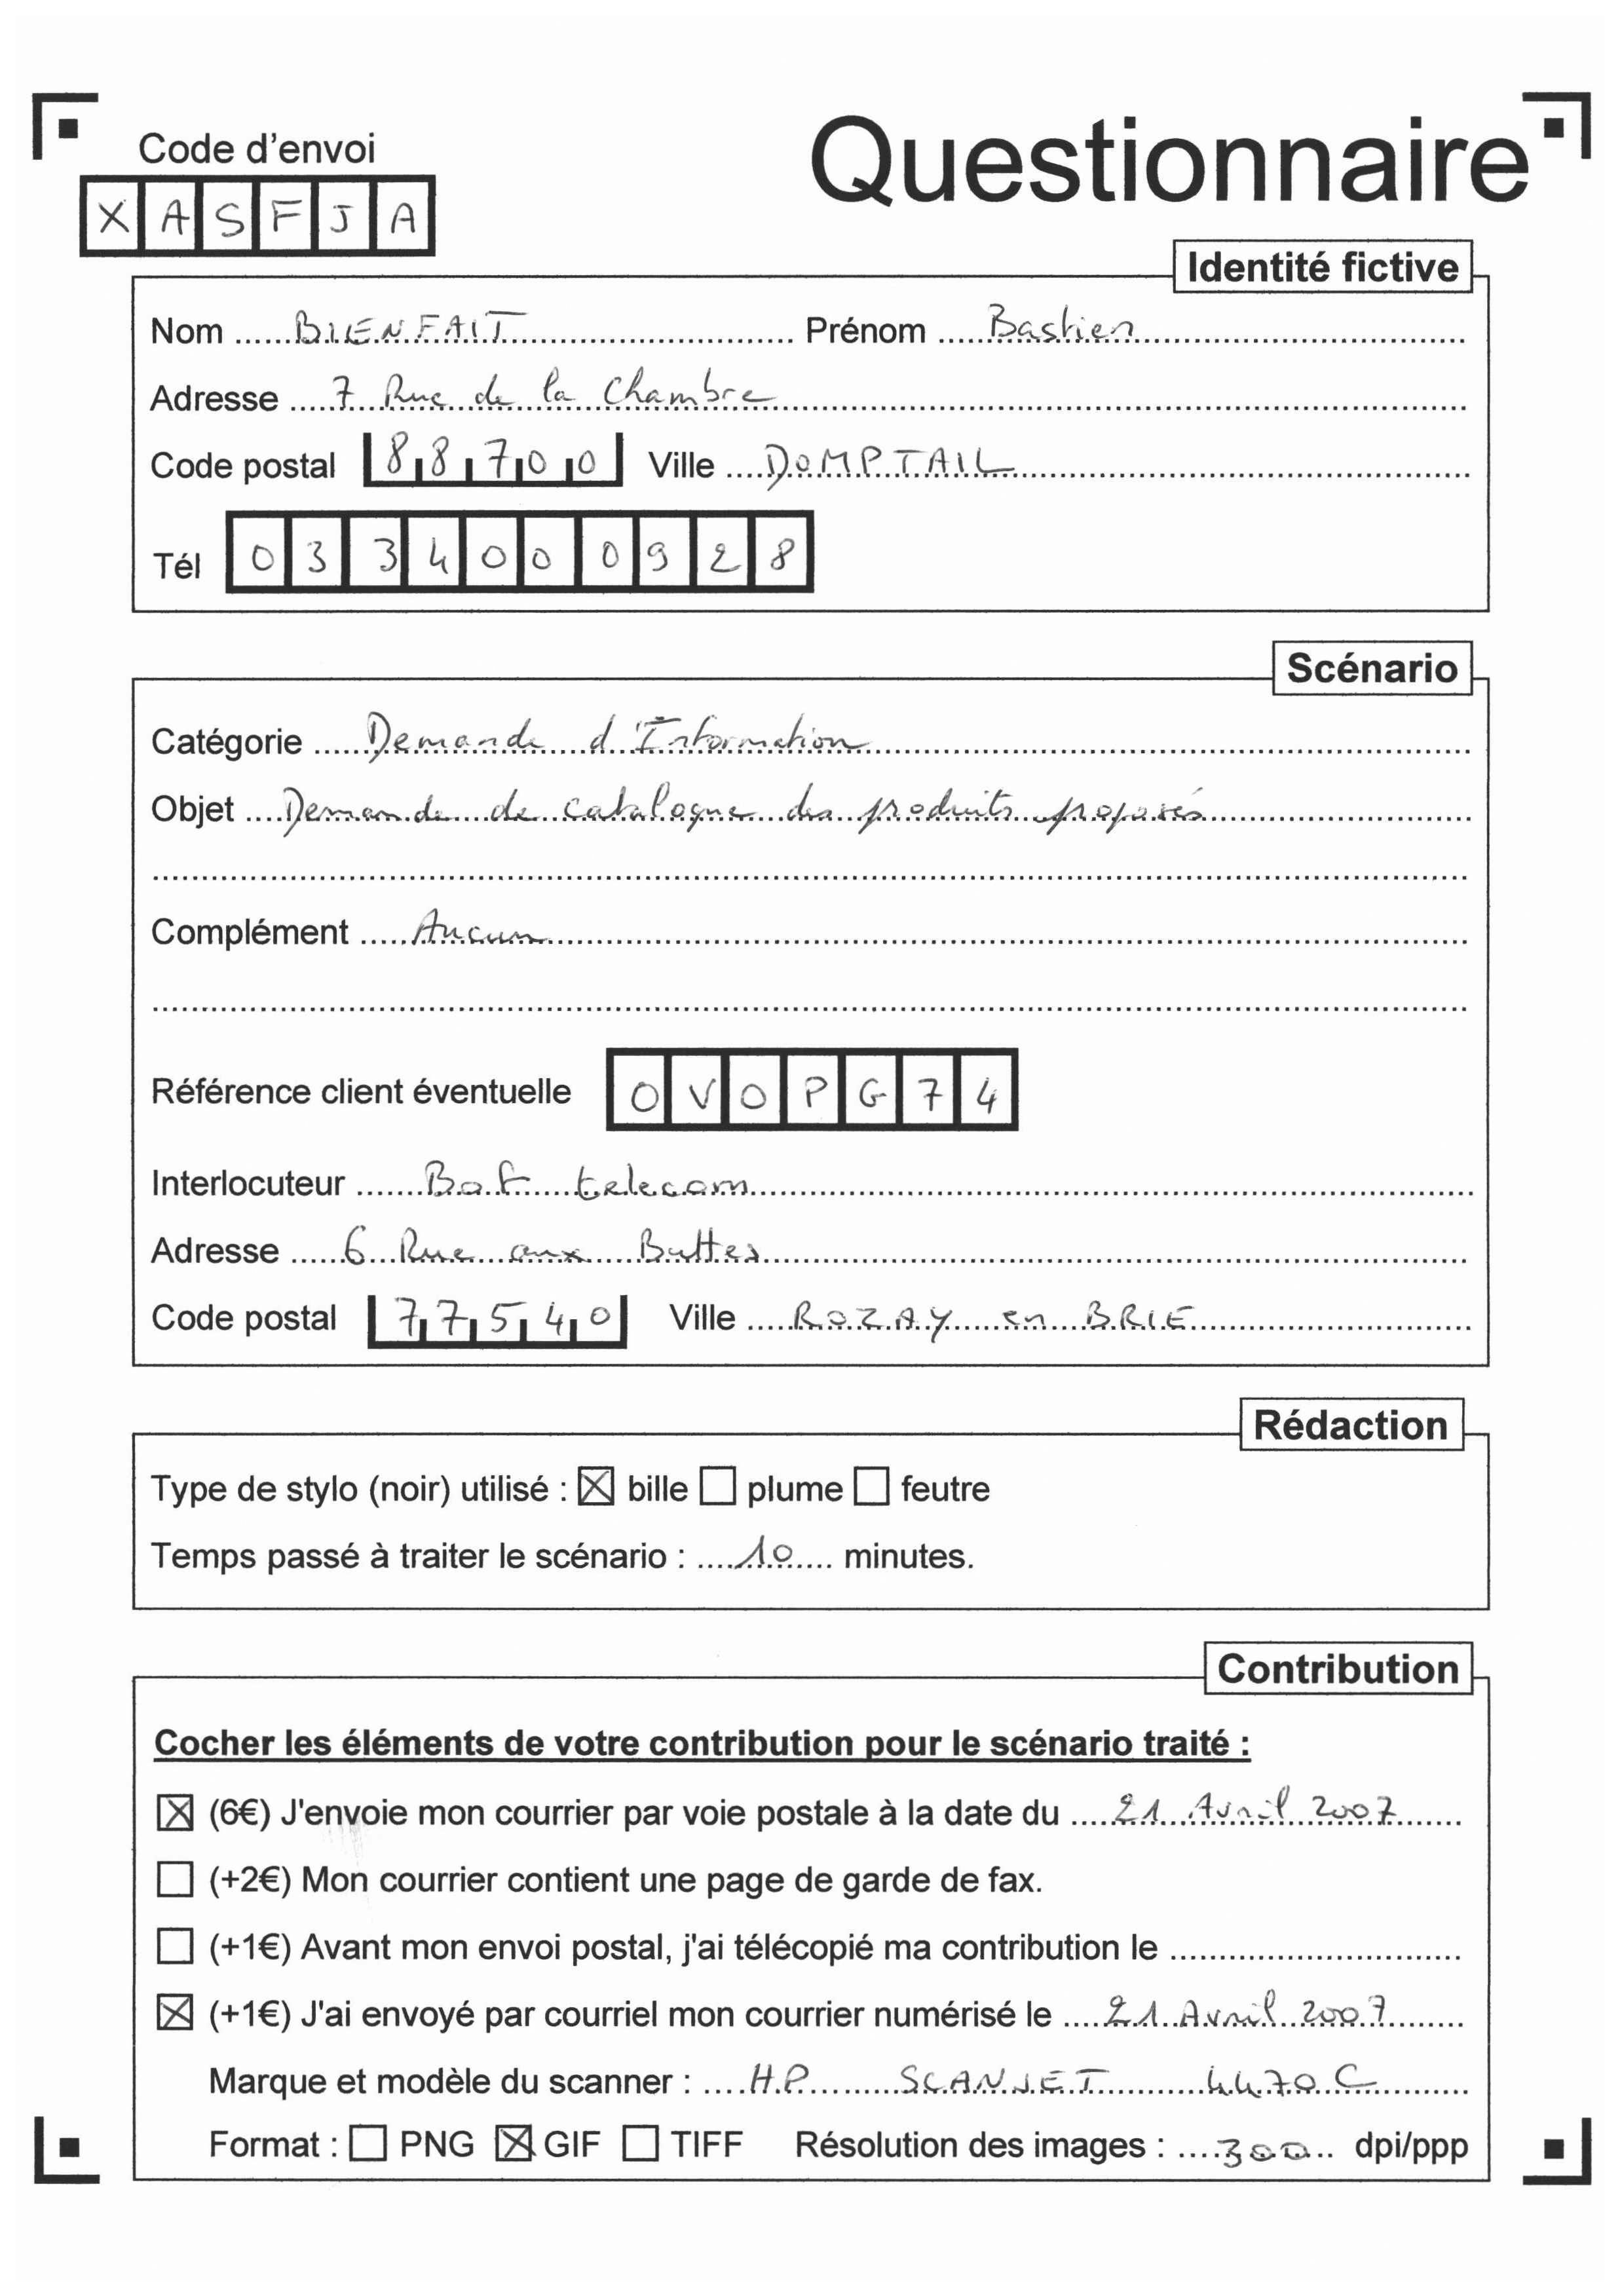 Code d'envoi
Questionnaire
XASFJA
Identité fictive
Nom BIENFAIT Prénom Bastien
Adresse 7 Rue de la Chambre
Code postal 88700 Ville DOMPTAIL
Tél 0334000928
Scénario
Catégorie Demande d'Information
Objet Demande de catalogue des produits proposés
Complément Aucun
Référence client éventuelle OVOPG74
Interlocuteur Bof telecom
Adresse 6 Rue aux Buttes
Code postal 77540 Ville ROZAY en BRIE
Rédaction
Type de stylo (noir) utilisé : ☒ bille ☐ plume ☐ feutre
Temps passé à traiter le scénario : 10 minutes.
Contribution
Cocher les éléments de votre contribution pour le scénario traité :
☒ (6€) J'envoie mon courrier par voie postale à la date du 21 Avril 2007
☐ (+2€) Mon courrier contient une page de garde de fax.
☐ (+1€) Avant mon envoi postal, j'ai télécopié ma contribution le
☒ (+1€) J'ai envoyé par courriel mon courrier numérisé le 21 Avril 2007
Marque et modèle du scanner : HP SCANJET 4470C
Format : ☐ PNG ☒ GIF ☐ TIFF Résolution des images : 300 dpi/ppp